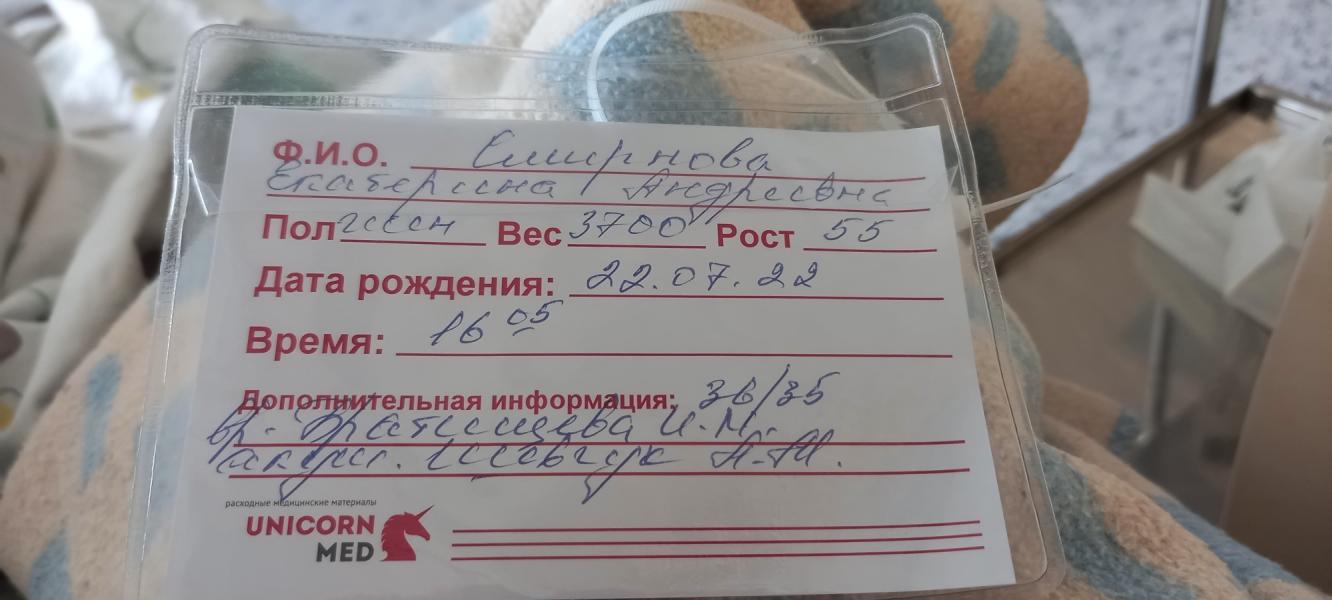 Ф.И.О. Смирнова
Екатерина Андреевна
Пол жен Вес 3700 Рост 55
Дата рождения: 22.07.22
Время: 16 05
Дополнительная информация: 36/35
вр. Братищева И.М.
акуш. Шевчук А.М.
расходные медицинские материалы
UNICORN
MED